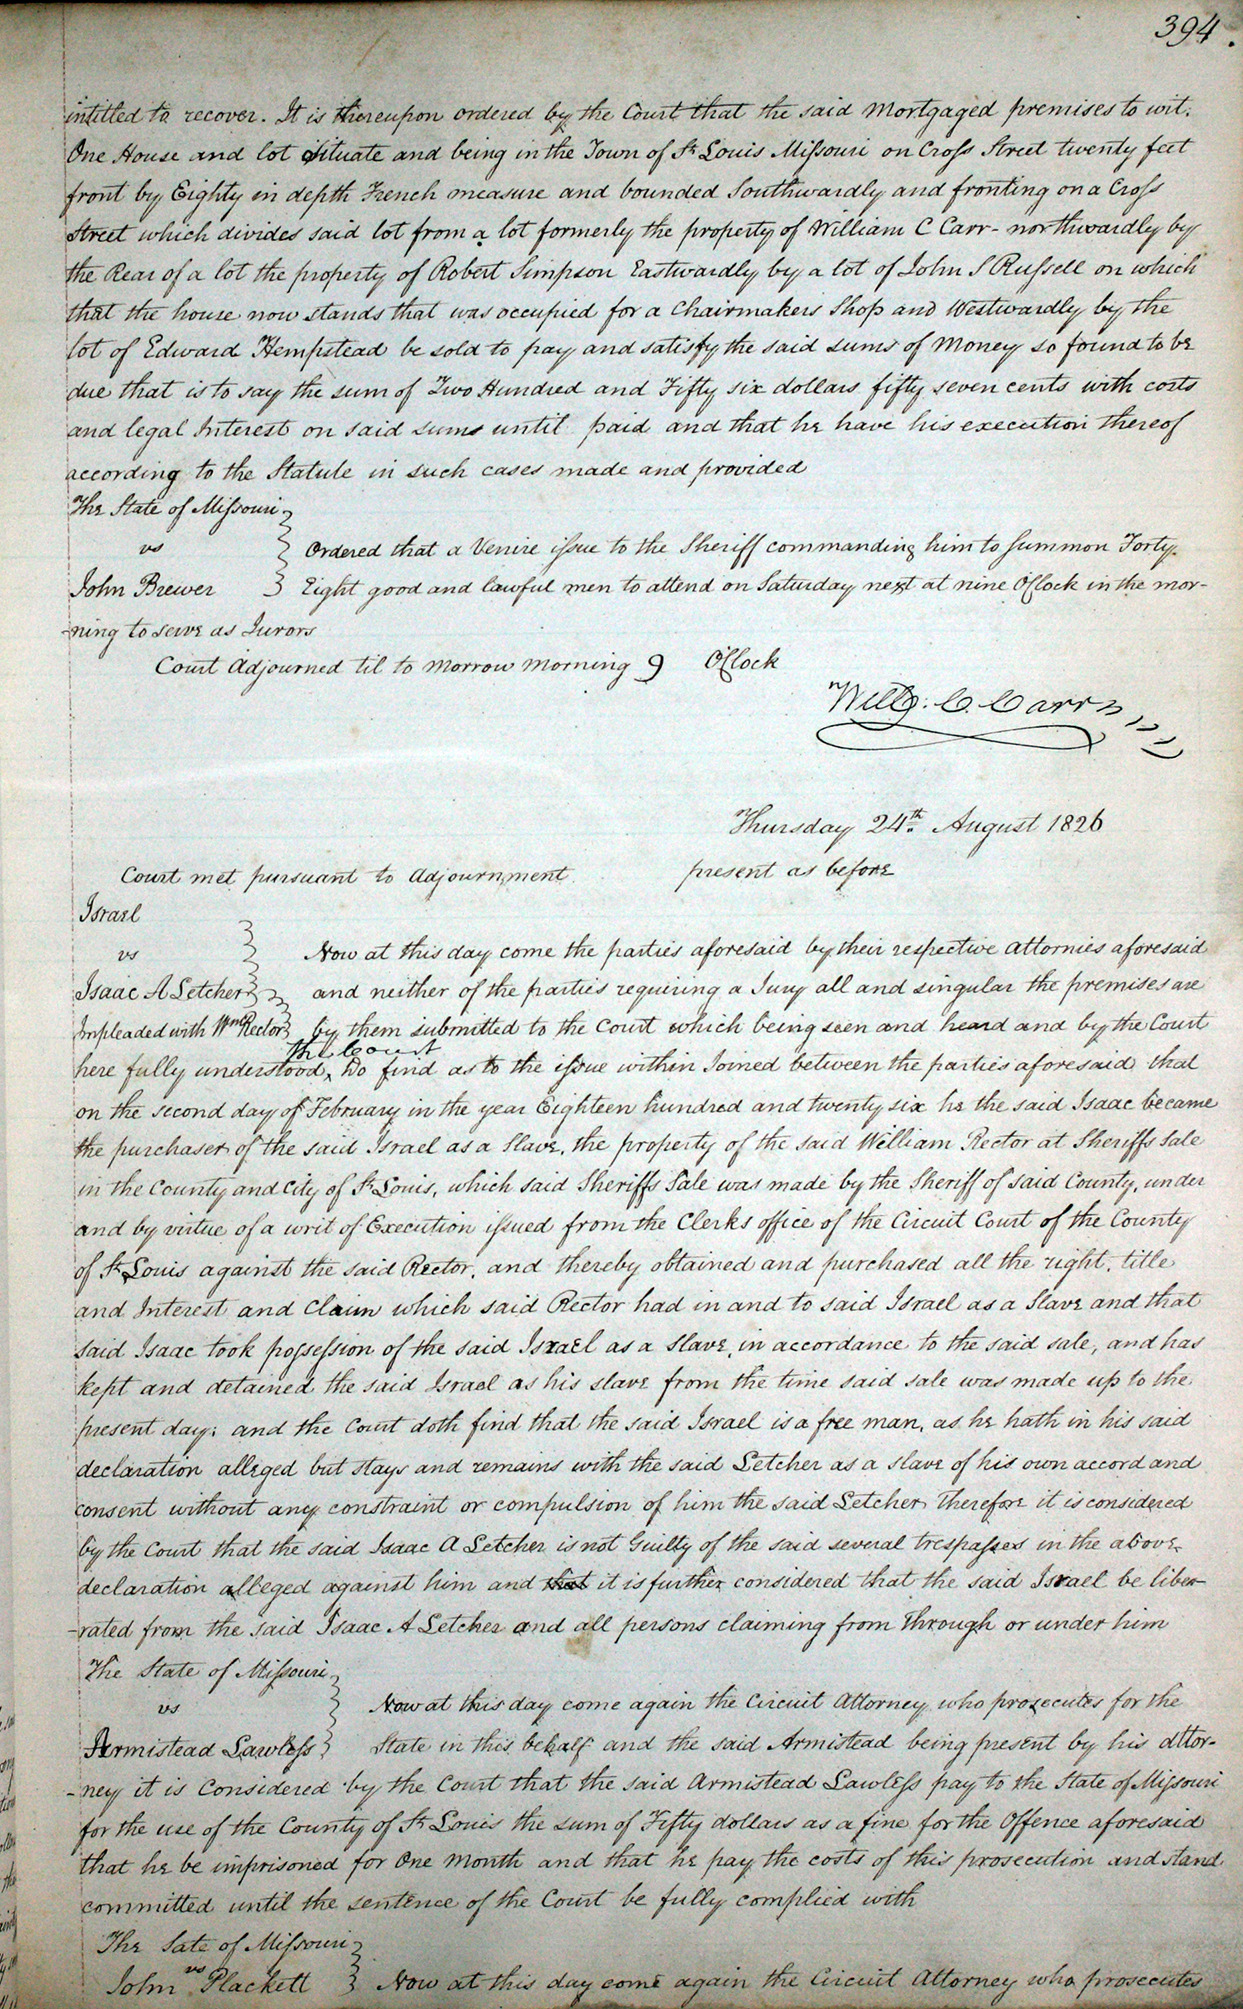 394.
intitled to recover. It is thereupon ordered by the Court that the said Mortgaged premises to wit.
One House and lot situate and being in the Town of St Louis Missouri on Cross Street twenty feet
front by Eighty in depth French measure and bounded Southwardly and fronting on a Cross
Street which divides said lot from a lot formerly the property of William C Carr - northwardly by
the Rear of a lot the property of Robert Simpson Eastwardly by a lot of John S Russell on which
that the house now stands that was occupied for a Chairmakers Shop and Westwardly by the
lot of Edward Hempstead be sold to pay and satisfy the said sums of Money so found to be
due that is to say the sum of Two Hundred and Fifty six dollars fifty seven cents with costs
and legal Interest on said sums until paid and that he have his execution thereof
according to the Statute in such cases made and provided
The State of Missouri
vs
Ordered that a Venire issue to the Sheriff commanding him to summon Forty-
John Brewer
Eight good and lawful men to attend on Saturday next at nine OClock in the mor-
-ning to serve as Jurors
Court Adjourned til to morrow morning 9 OClock
Will: C. Carr
Thursday 24th August 1826
Court met pursuant to Adjournment present as before
Israel
vs
Now at this day come the parties aforesaid by their respective Attornies aforesaid
Isaac A Letcher
and neither of the parties requiring a Jury all and singular the premises are
Impleaded with Wm Rector
by them submitted to the Court which being seen and heard and by the Court
the Court
here fully understood, Do find as to the issue within Joined between the parties aforesaid that
on the second day of February in the year Eighteen hundred and twenty six he the said Isaac became
the purchaser of the said Israel as a Slave, the property of the said William Rector at Sheriffs Sale
in the County and City of St Louis, which said Sheriffs Sale was made by the Sheriff of said County, under
and by virtue of a writ of Execution issued from the Clerks office of the Circuit Court of the County
of St Louis against the said Rector, and thereby obtained and purchased all the right, title
and Interest and Claim which said Rector had in and to said Israel as a Slave and that
said Isaac took possession of the said Israel as a slave, in accordance to the said sale, and has
kept and detained the said Israel as his slave from the time said sale was made up to the
present day; and the Court doth find that the said Israel is a free man, as he hath in his said
declaration alleged but stays and remains with the said Letcher as a slave of his own accord and
consent without any constraint or compulsion of him the said Letcher Therefore it is considered
by the Court that the said Isaac A Letcher is not Guilty of the said several trespasses in the above
declaration alleged against him and that it is further considered that the said Israel be libe-
-rated from the said Isaac A Letcher and all persons claiming from through or under him
The State of Missouri
vs
Now at this day come again the Circuit Attorney who prosecutes for the
Armistead Lawless
State in this behalf and the said Armistead being present by his attor-
-ney it is Considered by the Court that the said Armistead Lawless pay to the State of Missouri
for the use of the County of St Louis the sum of Fifty dollars as a fine for the Offence aforesaid
that he be imprisoned for One Month and that he pay the costs of this prosecution and stand
committed until the sentence of the Court be fully complied with
The Sate of Missouri
vs
John Plackett
Now at this day come again the Circuit Attorney who prosecutes